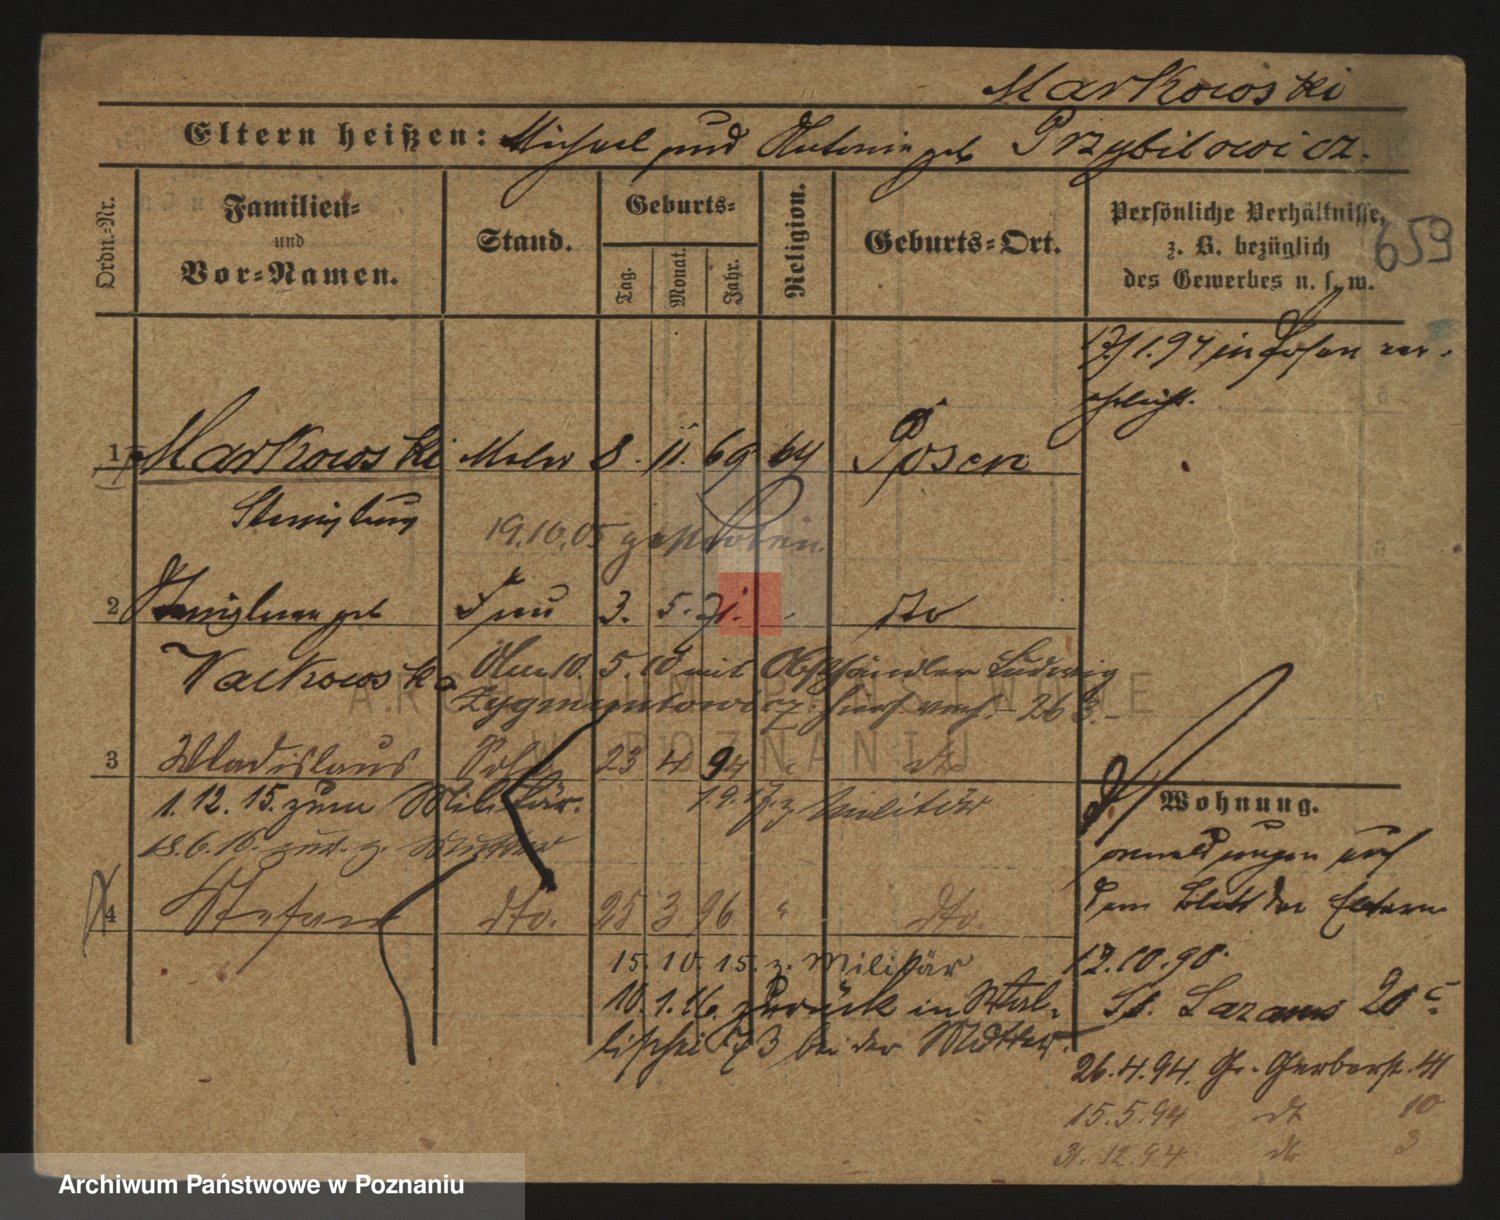 Markowski
Eltern heißen: Michael und Antonie geb Przybilowicz.
Ordn.-Nr.
Familien-
und
Vor-Namen.
Stand.
Geburts-
Tag.
Monat.
Jahr.
Religion.
Geburts-Ort.
Persönliche Verhältnisse,
z. B. bezüglich
des Gewerbes u. s. w.
659
17/1.94 in Posen ver-
ehelicht.
1 Markowski Maler 8. 11. 69 Posen
19.10.05 gestorben
2 geb Frau 3. 5. 71. dto
10. 5. 10 mit Obsthändler Ludwig
Zygmuntowicz hier verh. 26 3.
3 Wladislaus Sohn 23 4 94 " dto
1.12.15. zum Militär. 1.9.17. z Militär
18.6.16. zur. z. Mutter
4 Stefan dto. 25 3 96 " dto.
15.10.15. z. Militär
10.1.16. zurück in Wal-
lischei 73 bei der Mutter.
Wohnung.
dem Blatt der Eltern
12.10.90.
St. Lazarus 20 c
26.4.94. Gr. Gerberst. 41
15.5.94 dt 10
31.12.94 dt 3
ARCHIWUM PAŃSTWOWE
W POZNANIU
Archiwum Państwowe w Poznaniu